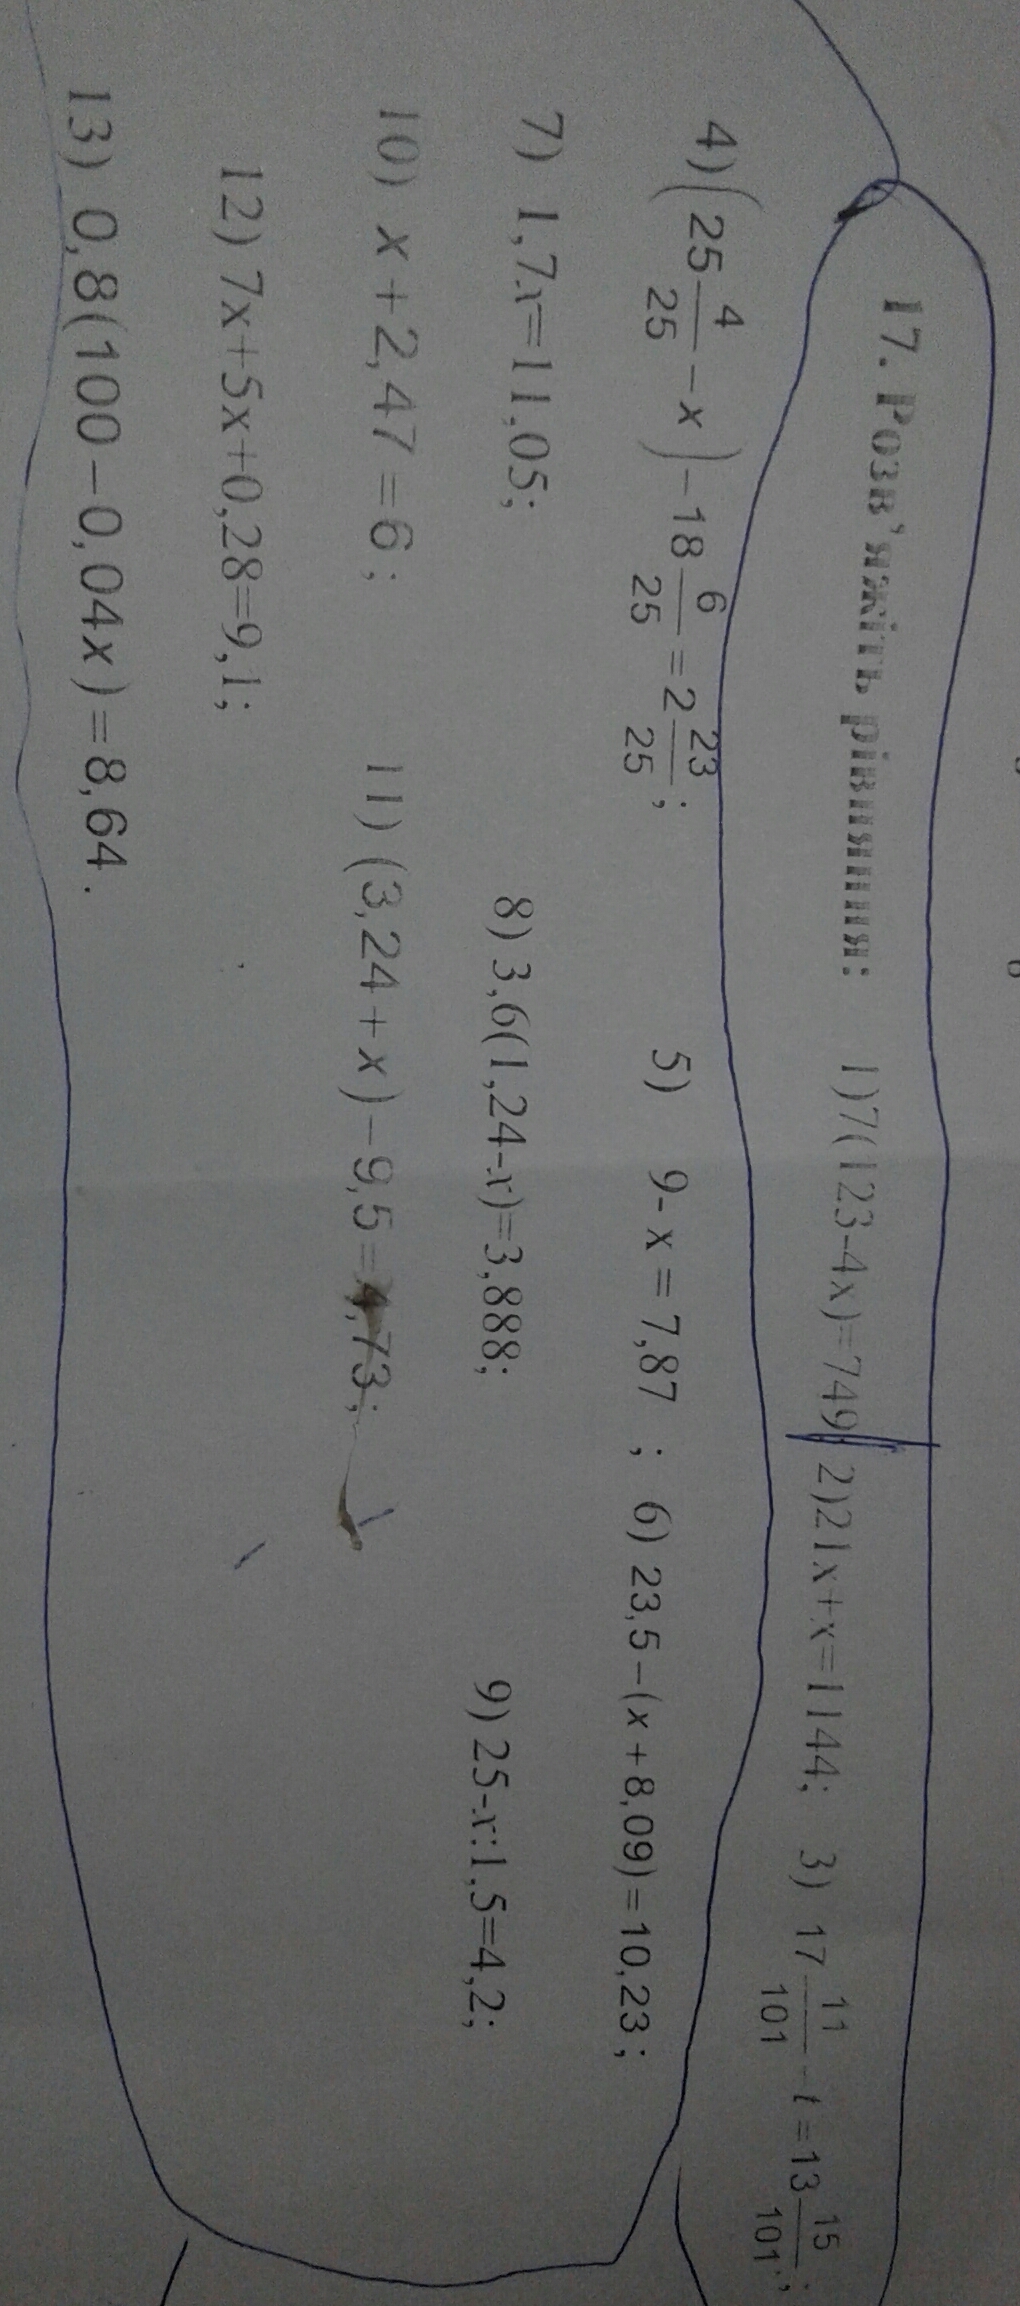 17. Розв'яжіть рівняння: 1)7(123-4x)=749 2)21x+x=1144; 3) 17 11/101 - t = 13 15/101;
4) (25 4/25 - x) - 18 6/25 = 2 23/25; 5) 9- x = 7,87 ; 6) 23,5-(x+8,09)=10,23;
7) 1,7x=11,05; 8) 3,6(1,24-x)=3,888; 9) 25-x:1,5=4,2;
10) x+2,47=6; 11) (3,24+x)-9,5=4,73;
12) 7x+5x+0,28=9,1;
13) 0,8(100-0,04x)=8,64.